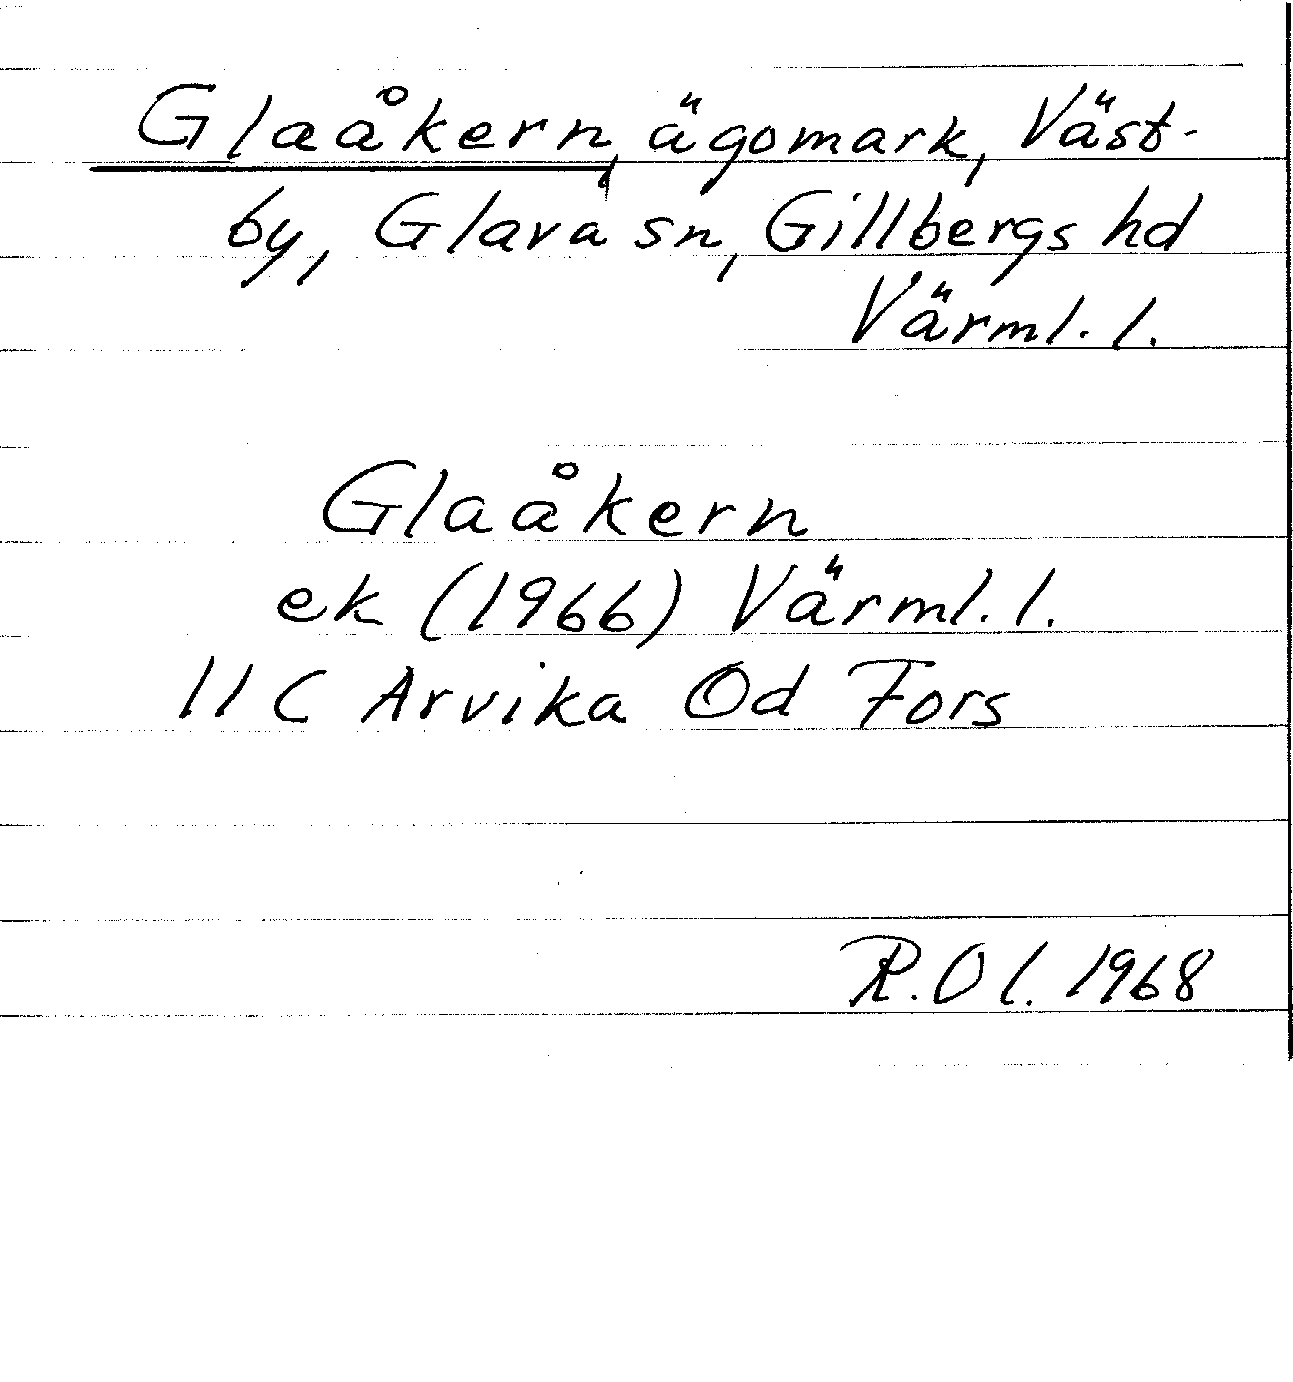 Glaåkern, ägomark, Väst-
by, Glava sn, Gillbergs hd
Värml. l.
Glaåkern
ek (1966) Värml. l.
11 C Arvika Od Fors
R.Ol. 1968